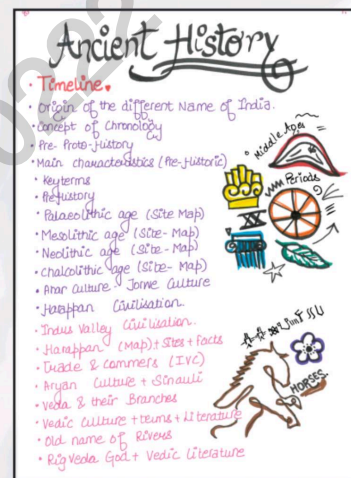 2022
Ancient History
• Timeline.
• Origin of the different Name of India.
• Concept of Chronology
• Pre-Proto-History
• Main characteristics (Pre-Historic)
• Key terms
• Prehistory
• Palaeolithic age (Site Map)
• Mesolithic age (Site-Map)
• Neolithic age (Site-Map)
• Chalcolithic age (Site-Map)
• Ahar Culture Jorwe Culture
• Harappan Civilisation.
• Indus Valley Civilisation.
• Harappan (Map)+Sites+Facts
• Trade & Commers (IVC)
• Aryan Culture + Sinauli
• Veda & their Branches
• Vedic Culture+terms+Literature
• Old name of Rivers
• Rigveda God + Vedic Literature
Middle Ages
Periods
XX
HORSES